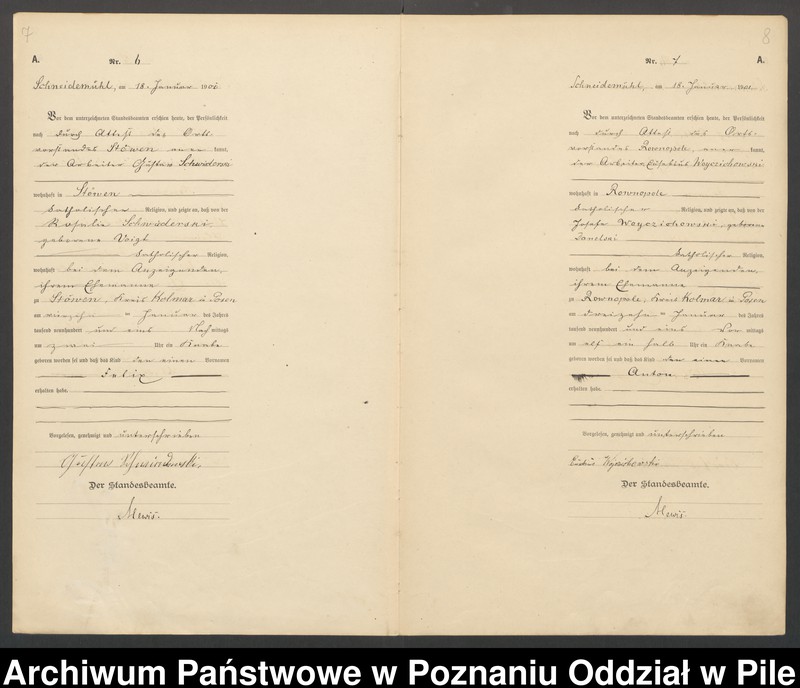 7
A.
Nr. 6
Schneidemühl, am 18. Januar 1901
Vor dem unterzeichneten Standesbeamten erschien heute, der Persönlichkeit
nach durch Attest des Orts-
vorstandes Stöwen kannt,
der Arbeiter Gustav Schwiderski
wohnhaft in Stöwen
katholischer Religion, und zeigte an, daß von der
Rosalie Schwiderski,
geborene Voigt
katholischer Religion,
wohnhaft bei dem Anzeigenden,
ihrem Ehemanne
zu Stöwen, Kreis Kolmar i/Posen
am vierzehn ten Januar des Jahres
tausend neunhundert und eins Nachmittags
um zwei Uhr ein Knabe
geboren worden sei und daß das Kind den einen Vornamen
Felix
erhalten habe.
Vorgelesen, genehmigt und unterschrieben
Gustav
Der Standesbeamte.
8
Nr. 7
A.
Schneidemühl, am 18. Januar 1901
Vor dem unterzeichneten Standesbeamten erschien heute, der Persönlichkeit
nach durch Attest des Orts-
vorstandes Rownopole, kannt,
der Arbeiter Woyzichowski
wohnhaft in Rownopole
katholischer Religion, und zeigte an, daß von der
Josefa Woyczichowski, geborene
katholischer Religion,
wohnhaft bei dem Anzeigenden,
ihrem Ehemanne
zu Rownopole, Kreis Kolmar i/Posen
am dreizehn ten Januar des Jahres
tausend neunhundert und eins Vormittags
um elf ein halb Uhr ein Knabe
geboren worden sei und daß das Kind den einen Vornamen
Anton
erhalten habe.
Vorgelesen, genehmigt und unterschrieben
Der Standesbeamte.
Archiwum Państwowe w Poznaniu Oddział w Pile